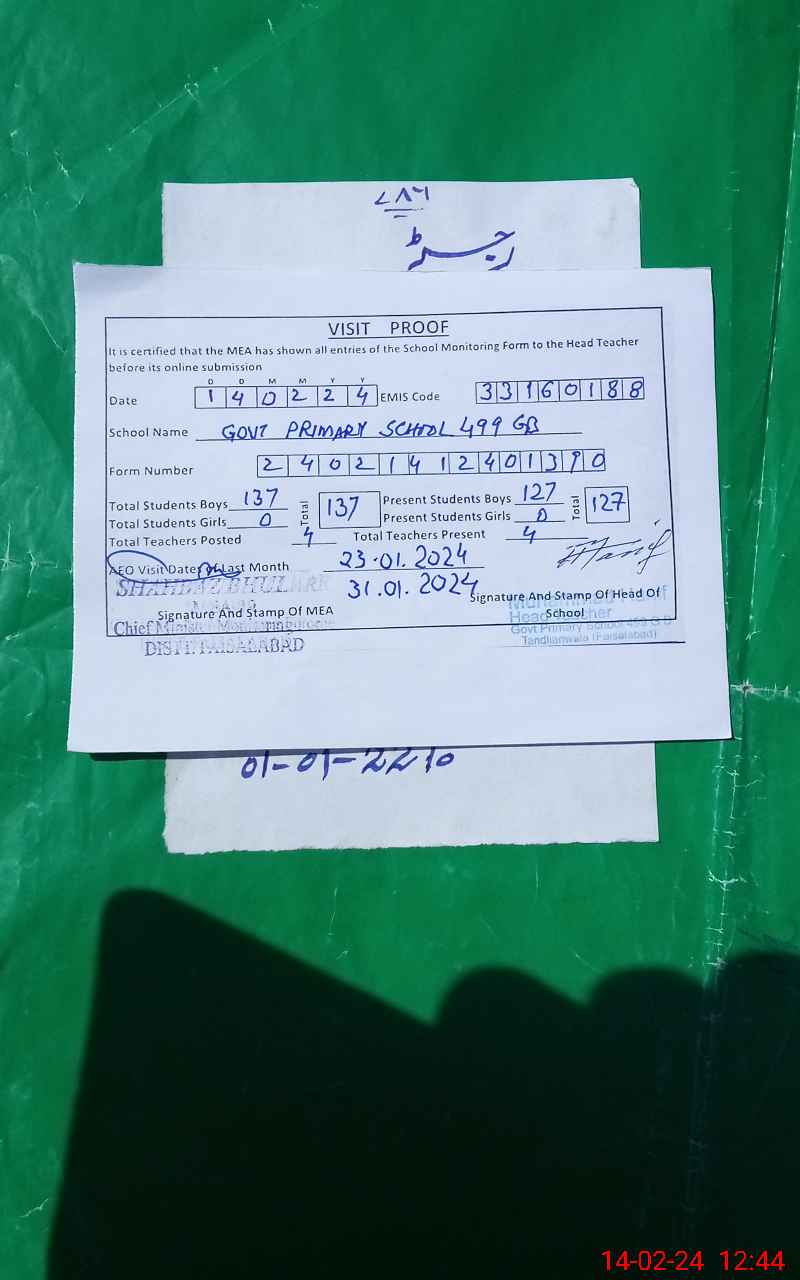 ۷۸۶
رجسٹر
VISIT PROOF
It is certified that the MEA has shown all entries of the School Monitoring Form to the Head Teacher
before its online submission
D D M M Y Y
Date 1 4 0 2 2 4 EMIS Code 3 3 1 6 0 1 8 8
School Name GOVT PRIMARY SCHOOL 499 GB
Form Number 2 4 0 2 1 4 1 2 4 0 1 3 9 0
Total Students Boys 137 Total 137 Present Students Boys 127 Total 127
Total Students Girls 0 Present Students Girls 0
Total Teachers Posted 4 Total Teachers Present 4
AEO Visit Dates Of Last Month 23.01.2024
31.01.2024
SHAHBAZ BHULARR
Signature And Stamp Of MEA
Chief Minister Monitoring
DISTT. FAISALABAD
Signature And Stamp Of Head Of
School
Muhammad Hanif
Head Teacher
Govt Primary School 499 G.B
Tandlianwala (Faisalabad)
01-01-22
14-02-24 12:44